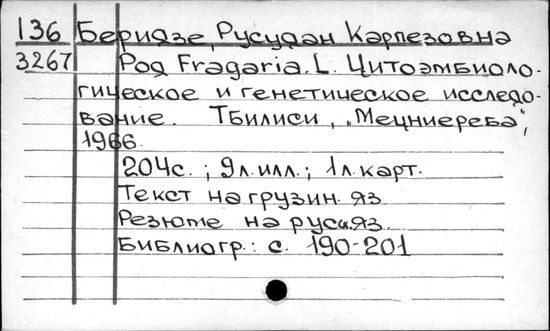 136 Беридзе, Русудан Карпезовна
3267 Род Fragaria. L. Цитоэмбиоло-
гическое и генетическое исследо-
вание. Тбилиси, „Мецниереба",
1966.
204с. ; 9л.илл.; 1л.карт.
Текст на грузин. яз.
Резюме на русс.яз.
Библиогр.: с. 190-201